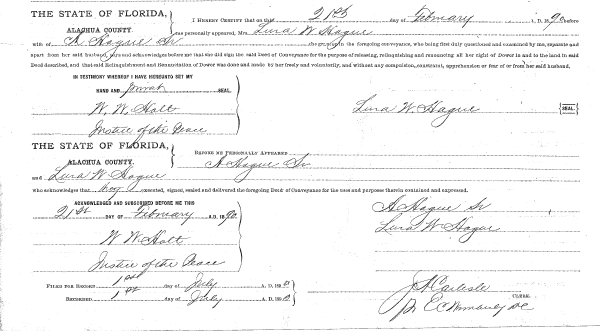 THE STATE OF FLORIDA,
ALACHUA COUNTY.
I HEREBY CERTIFY that on this 21st day of February A. D. 1890 before
me personally appeared, Mrs. Lura W Hague
wife of A Hague Sr the grantor in the foregoing conveyance, who being first duly questioned and examined by me, separate and
apart from her said husband, and acknowledges before me that she did sign the said Deed of Conveyance for the purpose of releasing, relinquishing and renouncing all her right of Dower in and to the land in said
Deed described, and that said Relinquishment and Renunciation of Dower was done and made by her freely and voluntarily, and without any compulsion, constraint, apprehension or fear of or from her said husband.
IN TESTIMONY WHEREOF I HAVE HEREUNTO SET MY
HAND AND SEAL.
W. W. Holt
Justice of the Peace
Lura W. Hague {SEAL}
THE STATE OF FLORIDA,
ALACHUA COUNTY.
BEFORE ME PERSONALLY APPEARED
A Hague Sr
and Lura W Hague
who acknowledges that they executed, signed, sealed and delivered the foregoing Deed of Conveyance for the uses and purpose therein contained and expressed.
ACKNOWLEDGED AND SUBSCRIBED BEFORE ME THIS
21st DAY OF February A. D. 1890
W W Holt
Justice of the Peace
A Hague Sr
Lura W Hague
FILED FOR RECORD 1st day of July A. D. 1890
RECORDED 1st day of July A. D. 1890
J A Carlisle
CLERK.
DC